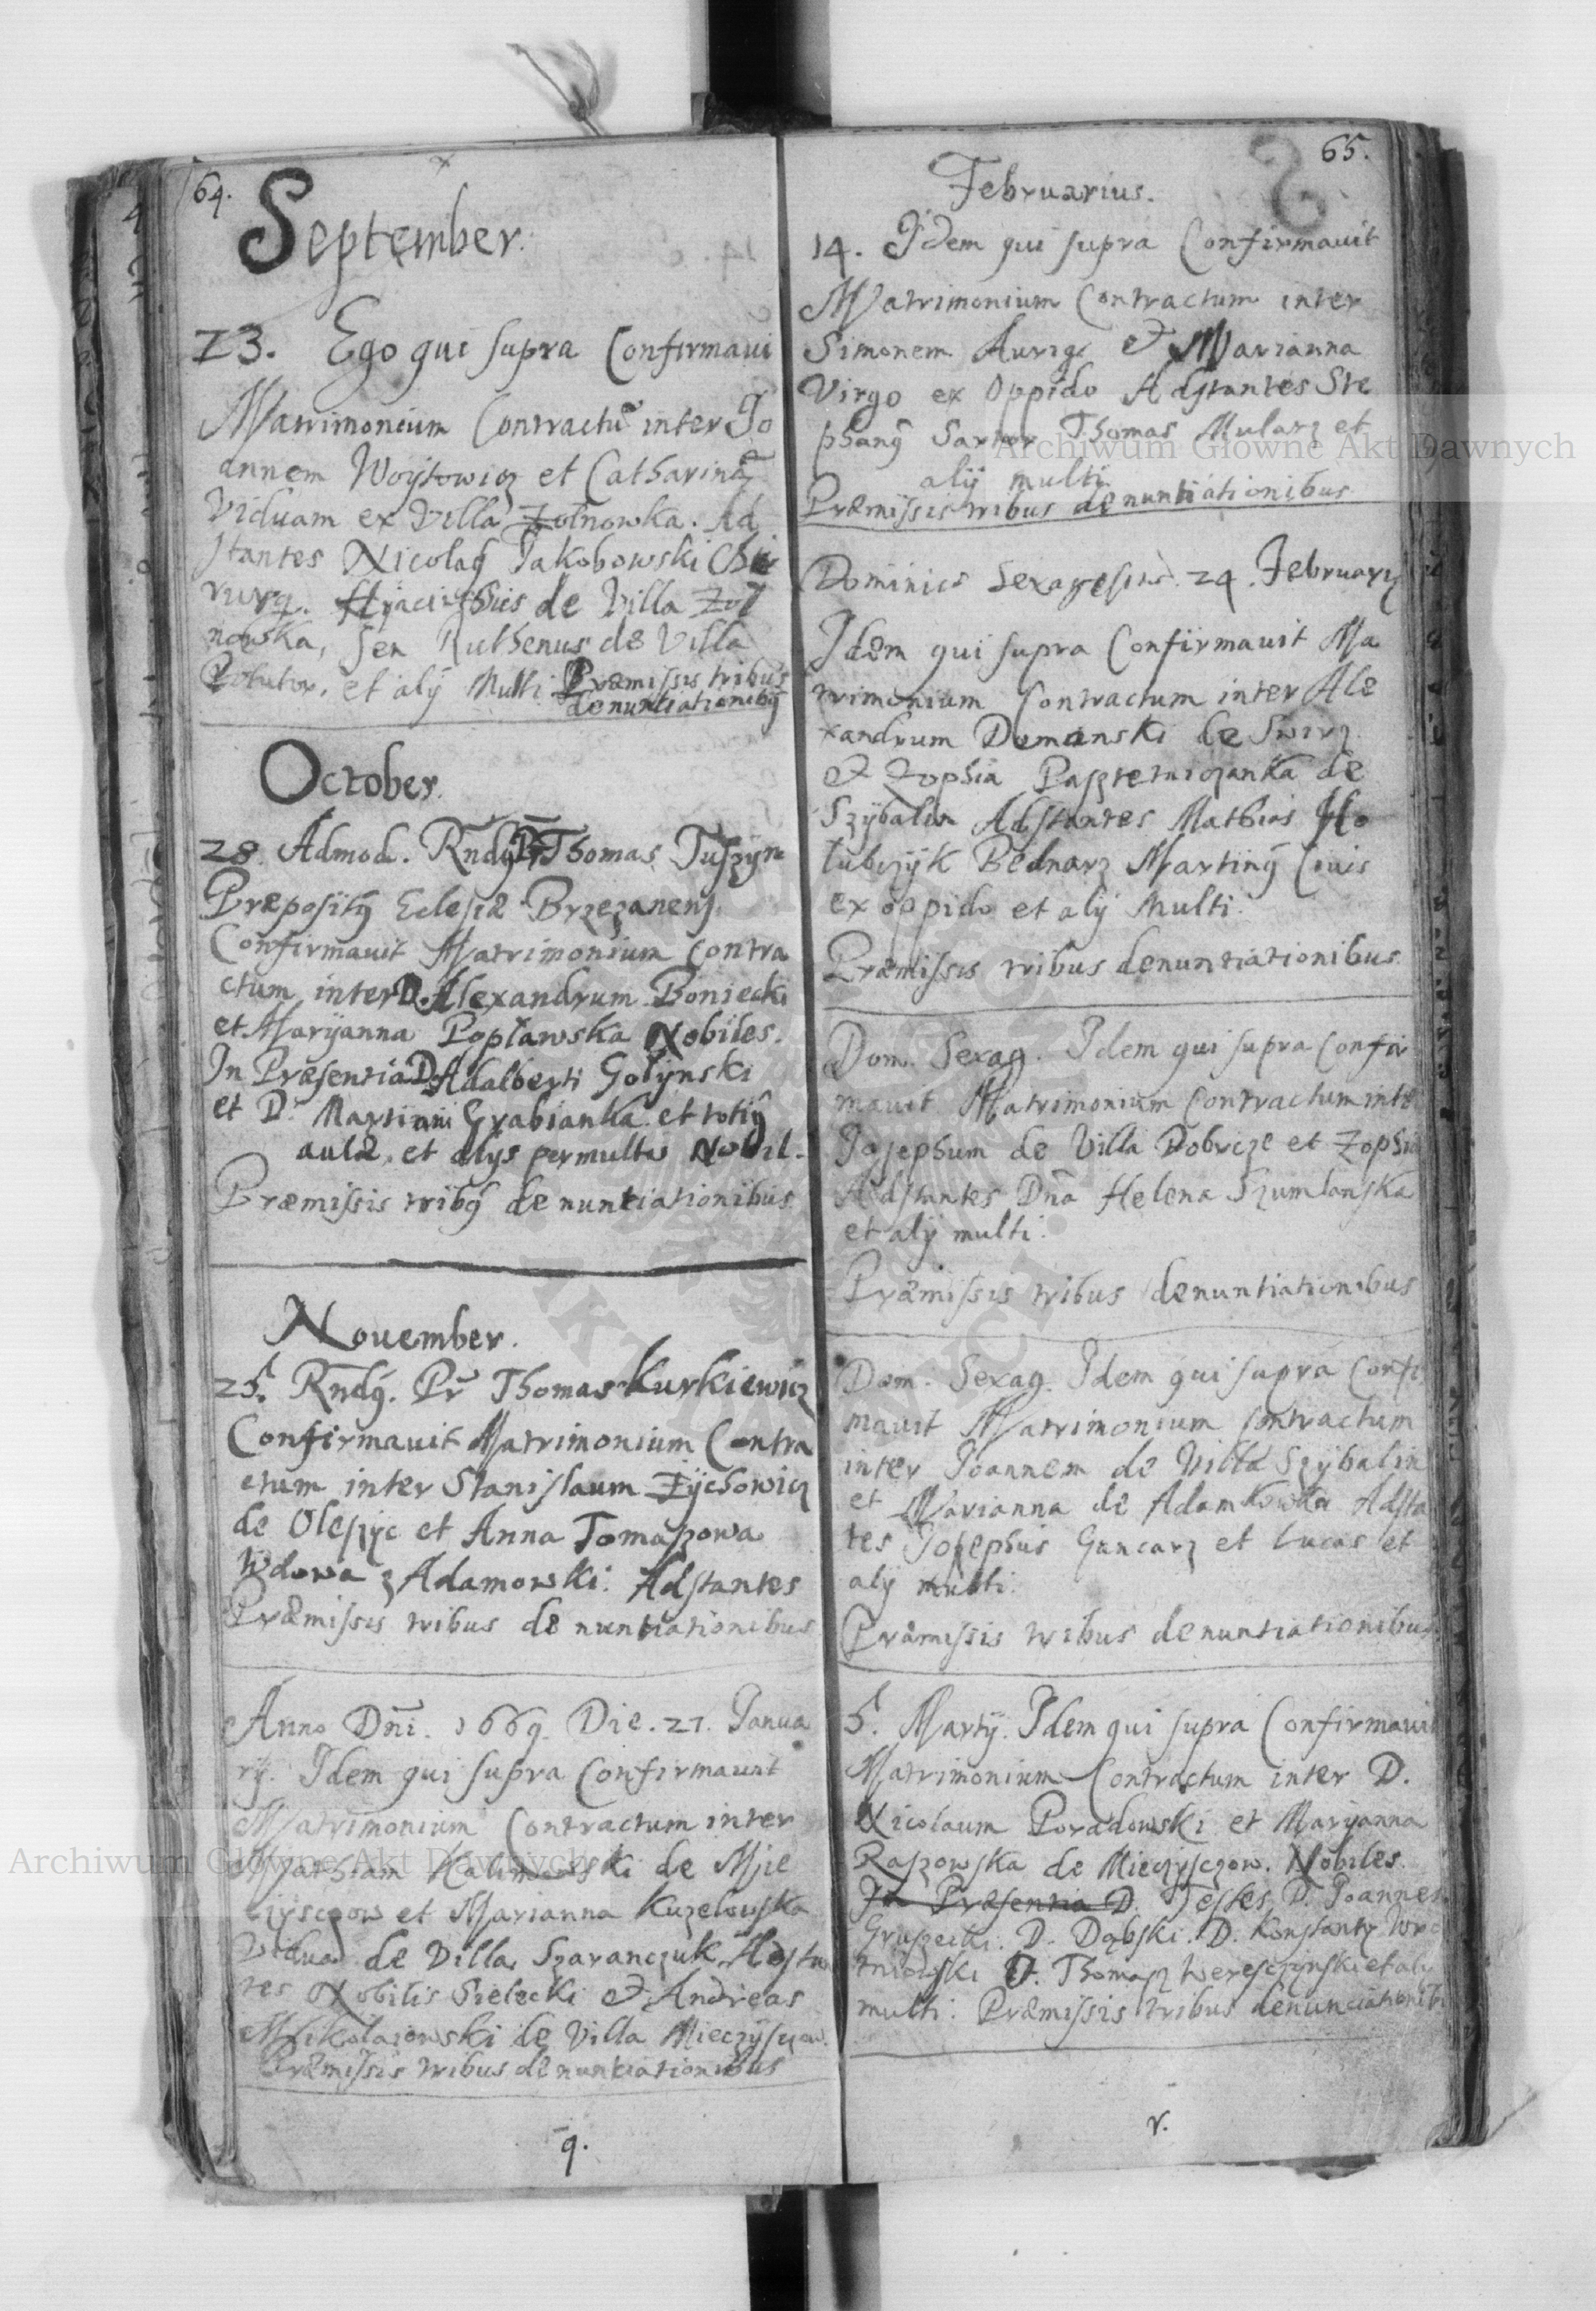 64.
September.
23. Ego qui supra Confirmaui
Matrimonium Contractũ inter Jo
annem Woÿtowicz et Catharinã
Viduam ex Villa Zolnowka. Ad
stantes Nicolaꝰ Jakobowski Chi
rurg. Hyacinthus de Villa Zol
nowska, Sen Ruthenus de Villa
Potutor, et alÿ Multi Præmissis tribus
denuntiationibꝰ
October.
28. Admod. Rndꝰ Dr Thomas Tuszÿn
Præpositꝰ Eclesiæ Brzezanens
Confirmauit Matrimonium Contra
ctum inter D. Alexandrum Boniecki
et Marÿanna Popławska Nobiles.
In Præsentia D. Adalberti Golÿnski
et D. Martini Grabianka et totiꝰ
aulæ, et alÿs permultis Nobil.
Præmissis tribꝰ denuntiationibus
November.
25. Rndꝰ. Pr Thomas Kurkiewicz
Confirmauit Matrimonium Contra
ctum inter Stanislaum Zÿchowicz
de Oleszÿc et Anna Tomaszowa
Wdowa z Adamowki. Adstantes
Præmissis tribus denuntiationibus
Anno Dni. 1669. Die. 27. Janua
rÿ. Idem qui supra Confirmauit
Matrimonium Contractum inter
Mathiam Kalinowski de Mie
czÿsczow et Marianna Kuzelowska
Vidua de Villa Szaranczuk Adstan
tes Nobilis Sielecki et Andreas
Mikolaiowski de Villa Mieczÿszow.
Præmissis tribus denuntiationibus
q.
65.
Februarius.
14. Idem qui supra Confirmauit
Matrimonium Contractum inter
Simonem Aurigæ et Marianna
Virgo ex Oppido Adstantes Ste
phanꝰ Sartor Thomas Mularz et
alÿ multi
Præmissis tribus denuntiationibus
Dominica Sexagesima. 24. Februarÿ
Idem qui supra Confirmauit Ma
trimonium Contractum inter Ale
xandrum Domanski de Swirz
et Zophia Paszteniczanka de
Szÿbalin Adstantes Mathias Ho
lubczÿk Bednarz Martinꝰ Ciuis
ex oppido et alÿ Multi.
Præmissis tribus denuntiationibus.
Dom. Sexag. Idem qui supra Confir
mauit Matrimonium Contractum inte
Josephum de Villa Dobrcze et Zophia
Adstantes Dna Helena Szumlanska
et alÿ multi.
Præmissis tribus denuntiationibus
Dom. Sexag. Idem qui supra Confi
mauit Matrimonium Contractum
inter Joannem de Villa Szÿbalin
et Marianna de Adamkowka Adsta
tes Josephus Gancarz et Lucas et
alÿ multi.
Præmissis tribus denuntiationibus
5. Martÿ. Idem qui supra Confirmauit
Matrimonium Contractum inter D.
Nicolaum Poradowski et Marÿanna
Raszowska de Mieczÿsczow. Nobiles.
In Præsentia D. Testes, D. Joannes
Gruszecki. D. Dąbski. D. Konstanty Wro
tnowski D. Thomasz Wereszczinski et alÿ
multi. Præmissis tribus denunciationib
r.
Archiwum Główne Akt Dawnych
Archiwum Główne Akt Dawnych